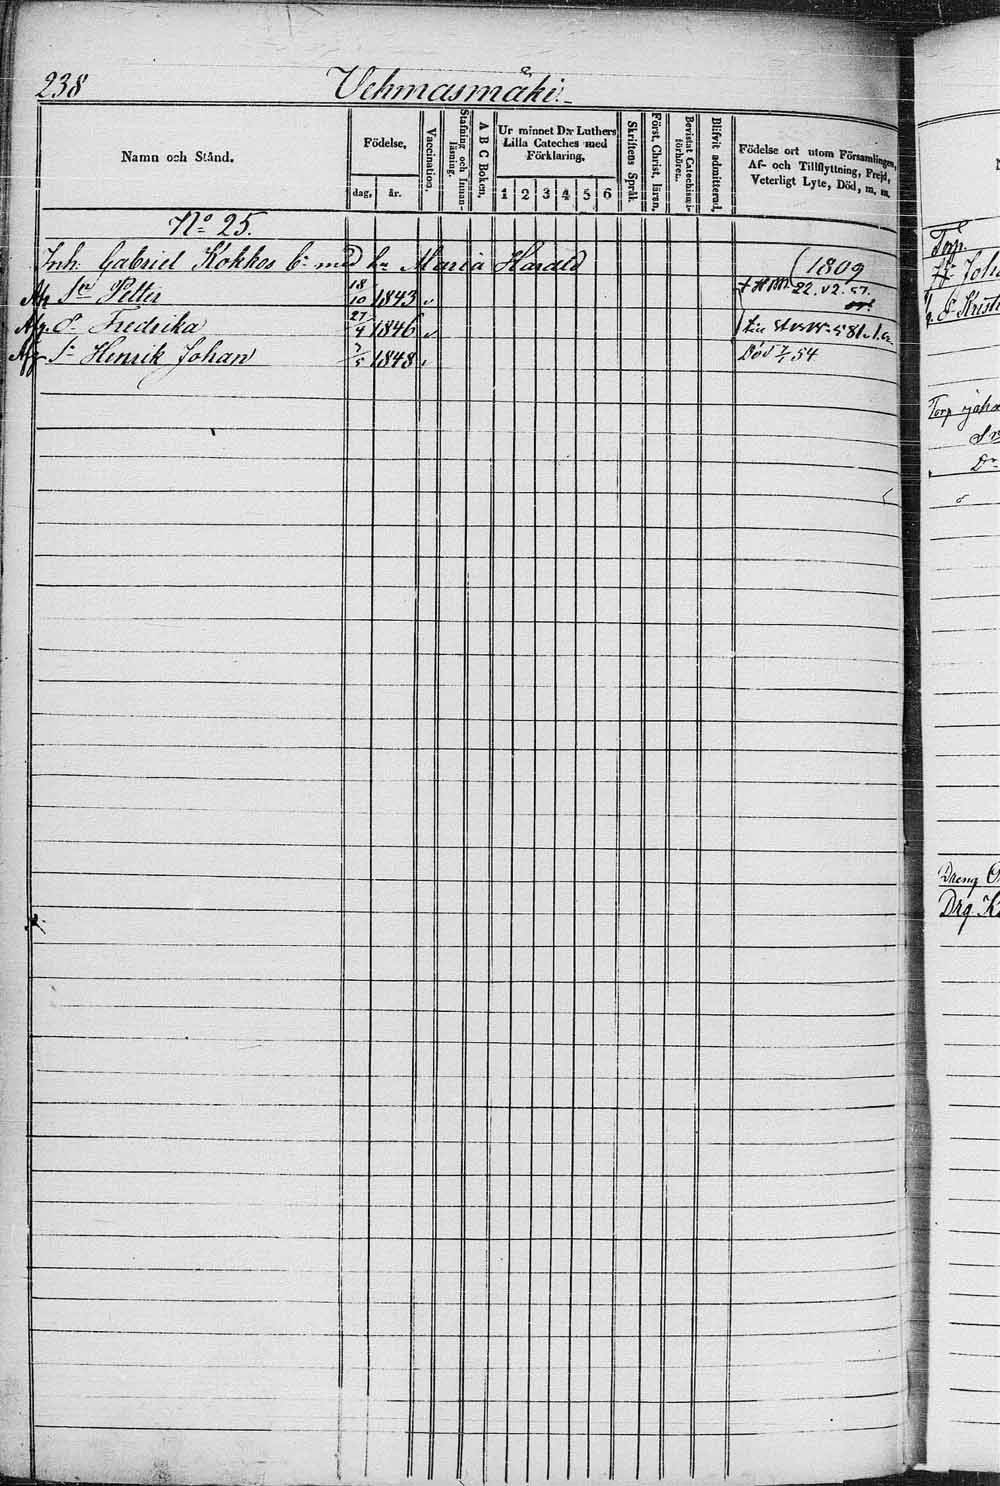 238 Vehmasmäki.
Namn och Stånd.
Födelse,
dag, år.
Vaccination.
Stafning och Innanläsning.
A B C Boken.
Ur minnet D:r Luthers Lilla Cateches med Förklaring.
1 2 3 4 5 6
Skriftens Språk
Först. Christ. läran.
Bevistat Catechismiförhören.
Blifvit admitterad,
Födelse ort utom Församlingen,
Af- och Tillflyttning, Frejd,
Veterligt Lyte, Död, m. m.
No 25.
Inh: Gabriel Kokkos med Maria Harald 1809
Petter 18/10 1843 22. 57.
Fredrika 27/4 1846
Henrik Johan 7/5 1848 Död 54
Torp.
Torp Joha
Dreng
Drg